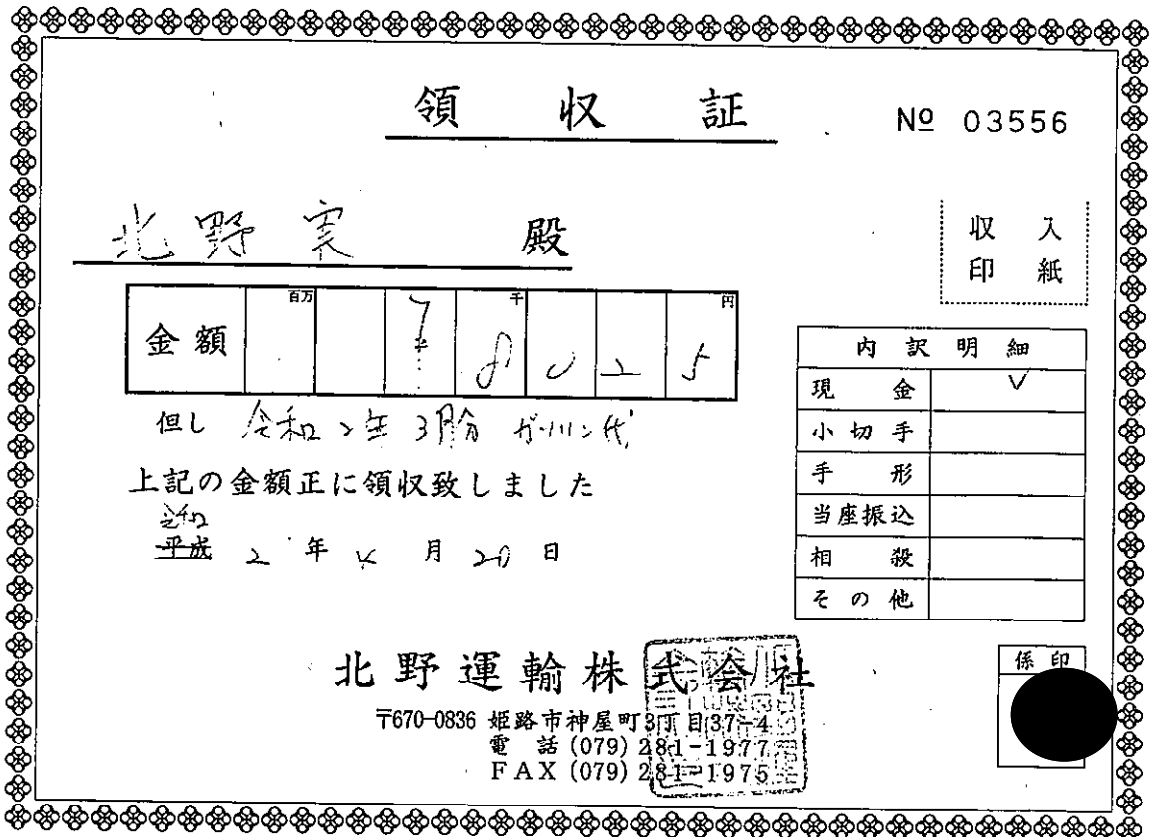 領収証
№ 03556
北野実 殿
収入
印紙
百万 千 円
金額 78025
但し 令和2年3月分 ガソリン代
上記の金額正に領収致しました
令和
平成 2年4月20日
内訳明細
現金 ✓
小切手
手形
当座振込
相殺
その他
北野運輸株式会社
係印
〒670-0836 姫路市神屋町3丁目37-4
電話(079)281-1977
FAX(079)281-1975